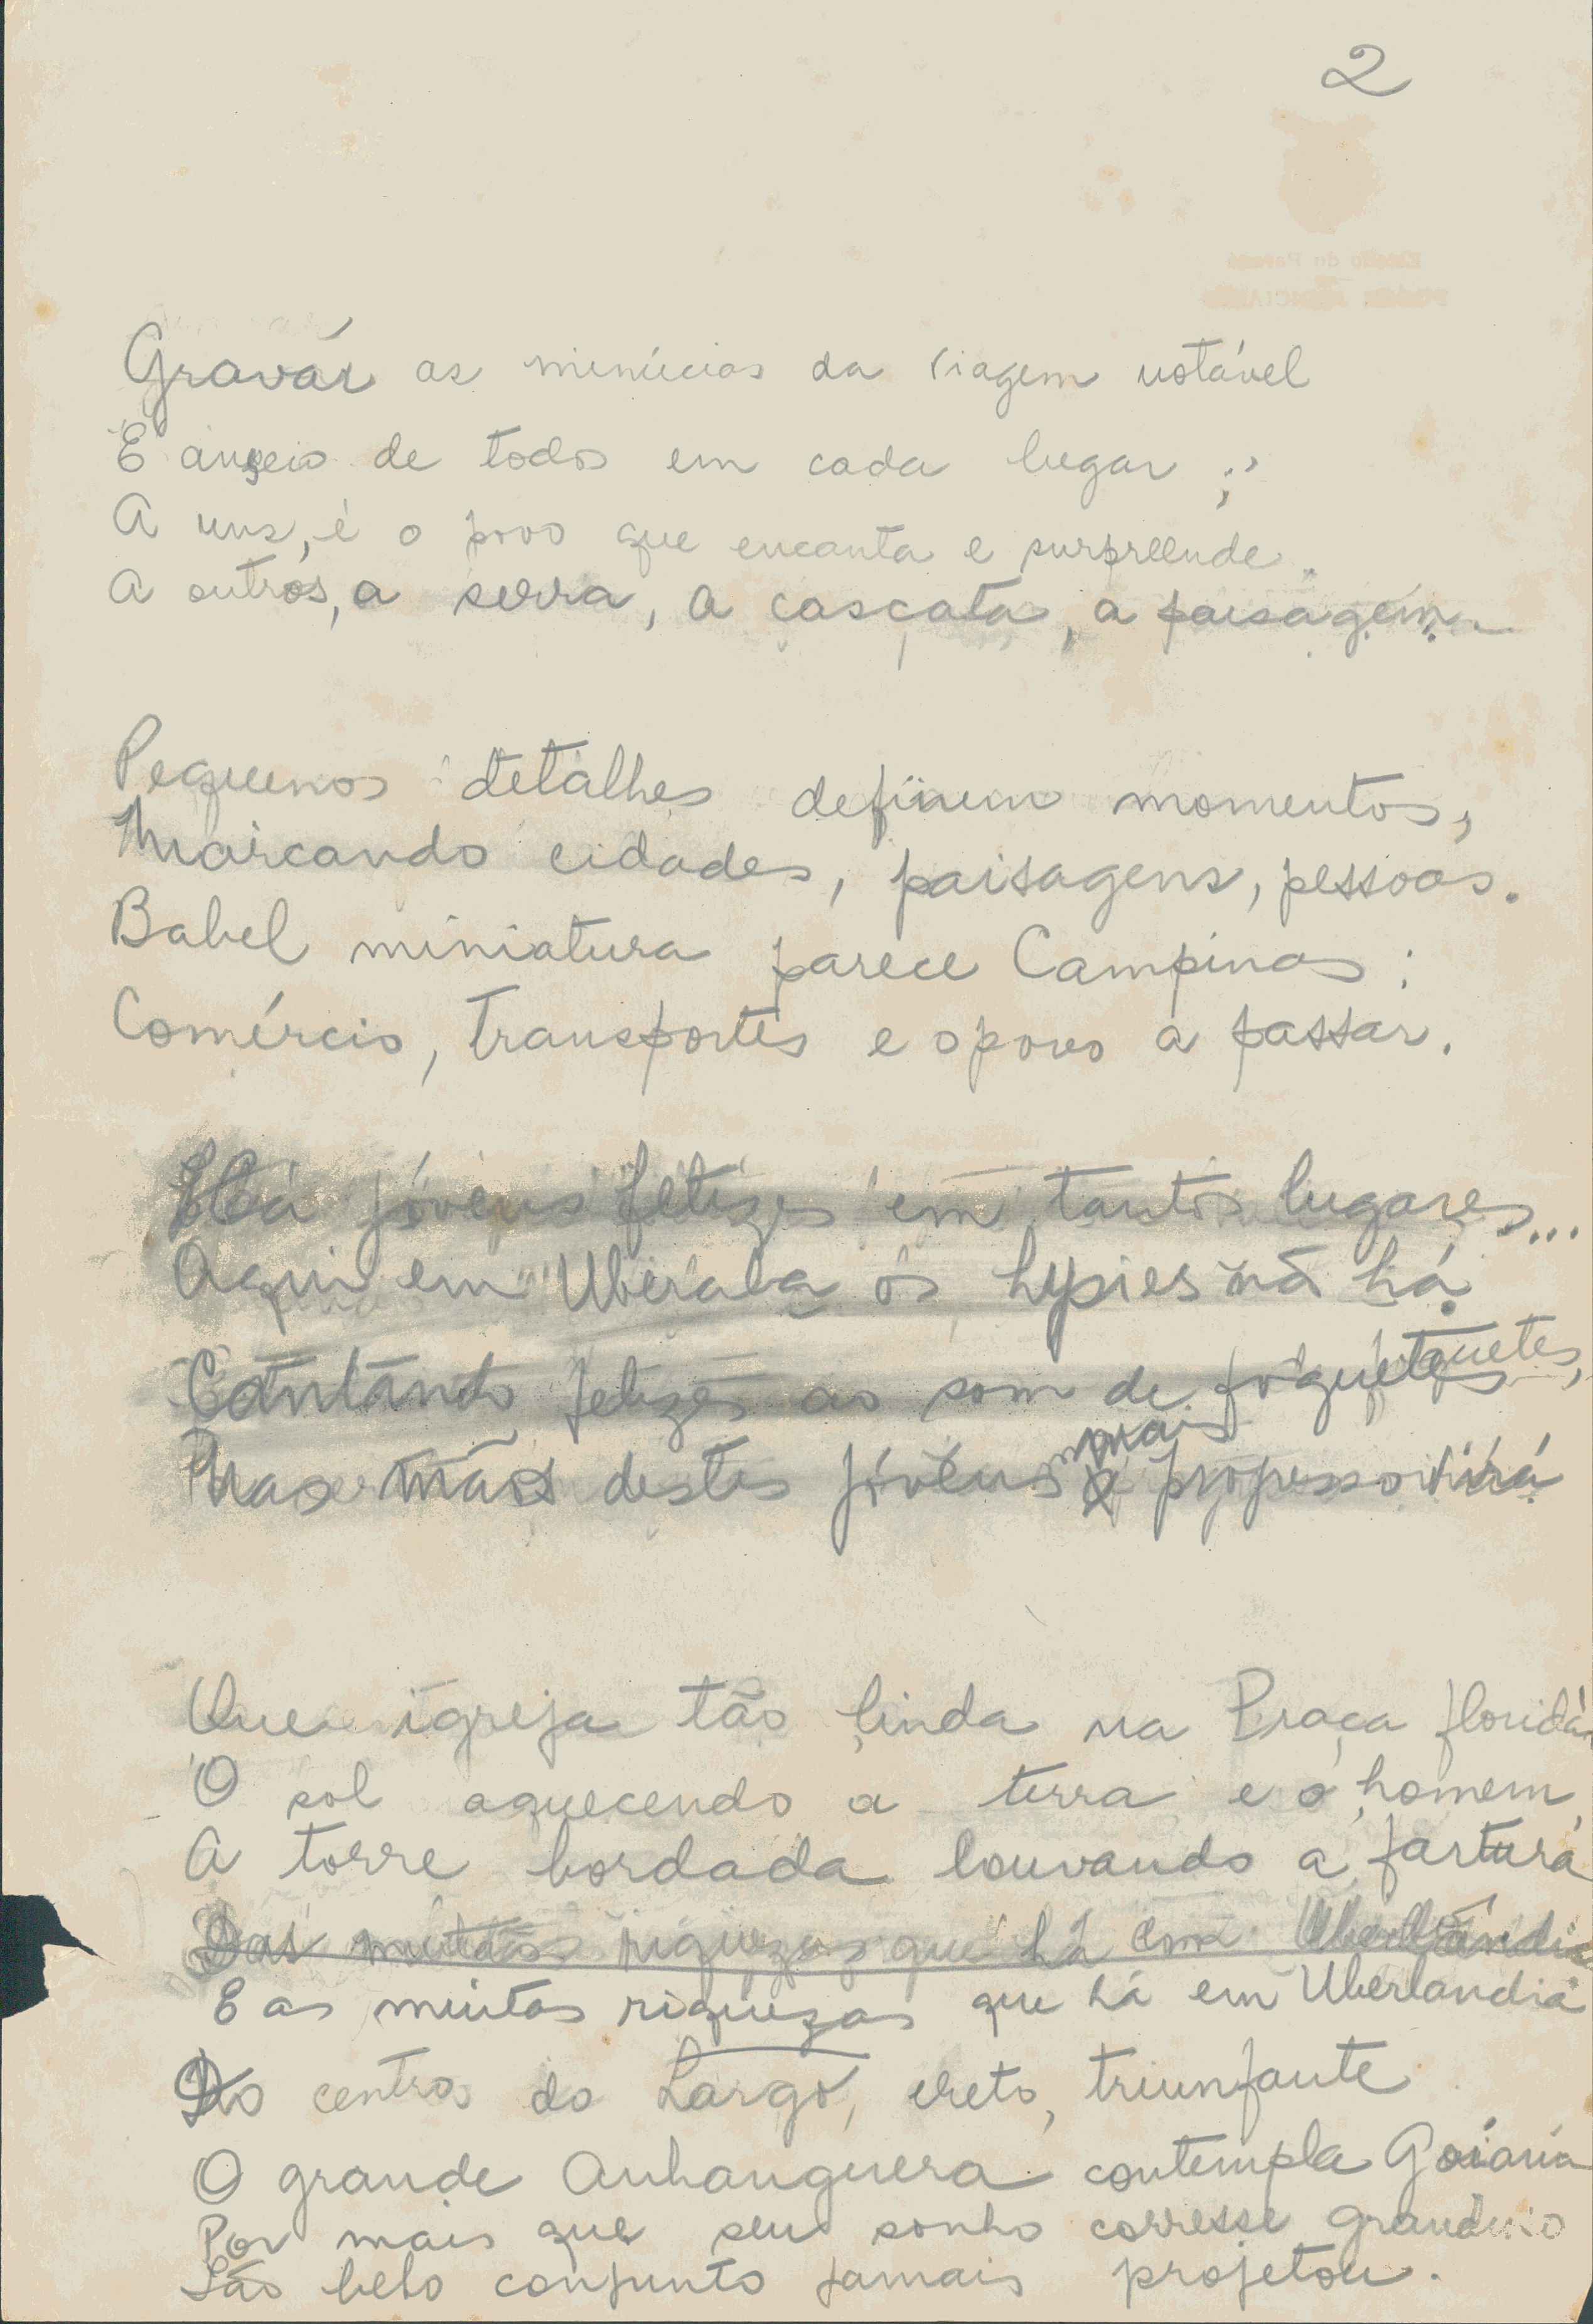 2
Gravar as minúcias da viagem notável
É anseio de todos em cada lugar;
A uns, é o povo que encanta e surpreende.
A outros, a serra, a cascata, a paisagem.
Pequenos detalhes definem momentos,
Marcando cidades, paisagens, pessoas.
Babel miniatura parece Campinas:
Comércio, transportes e o povo a passar.
Há jóvens felizes em tantos lugares...
Aqui em Uberaba os hypies não há.
Cantando felizes ao som de foguetes,
mais
Nas mãos destes jóvens o progresso virá
Que igreja tão linda na Praça florida
O sol aquecendo a terra e o homem,
A torre bordada louvando a fartura
Das muitas riquezas que há em Uberlândia
E as muitas riquezas que há em Uberlandia
Do centro do Largo, ereto, triunfante
O grande Anhanguera contempla Goiania
Por mais que seu sonho corresse grandioso
Tão belo conjunto jamais projetou.